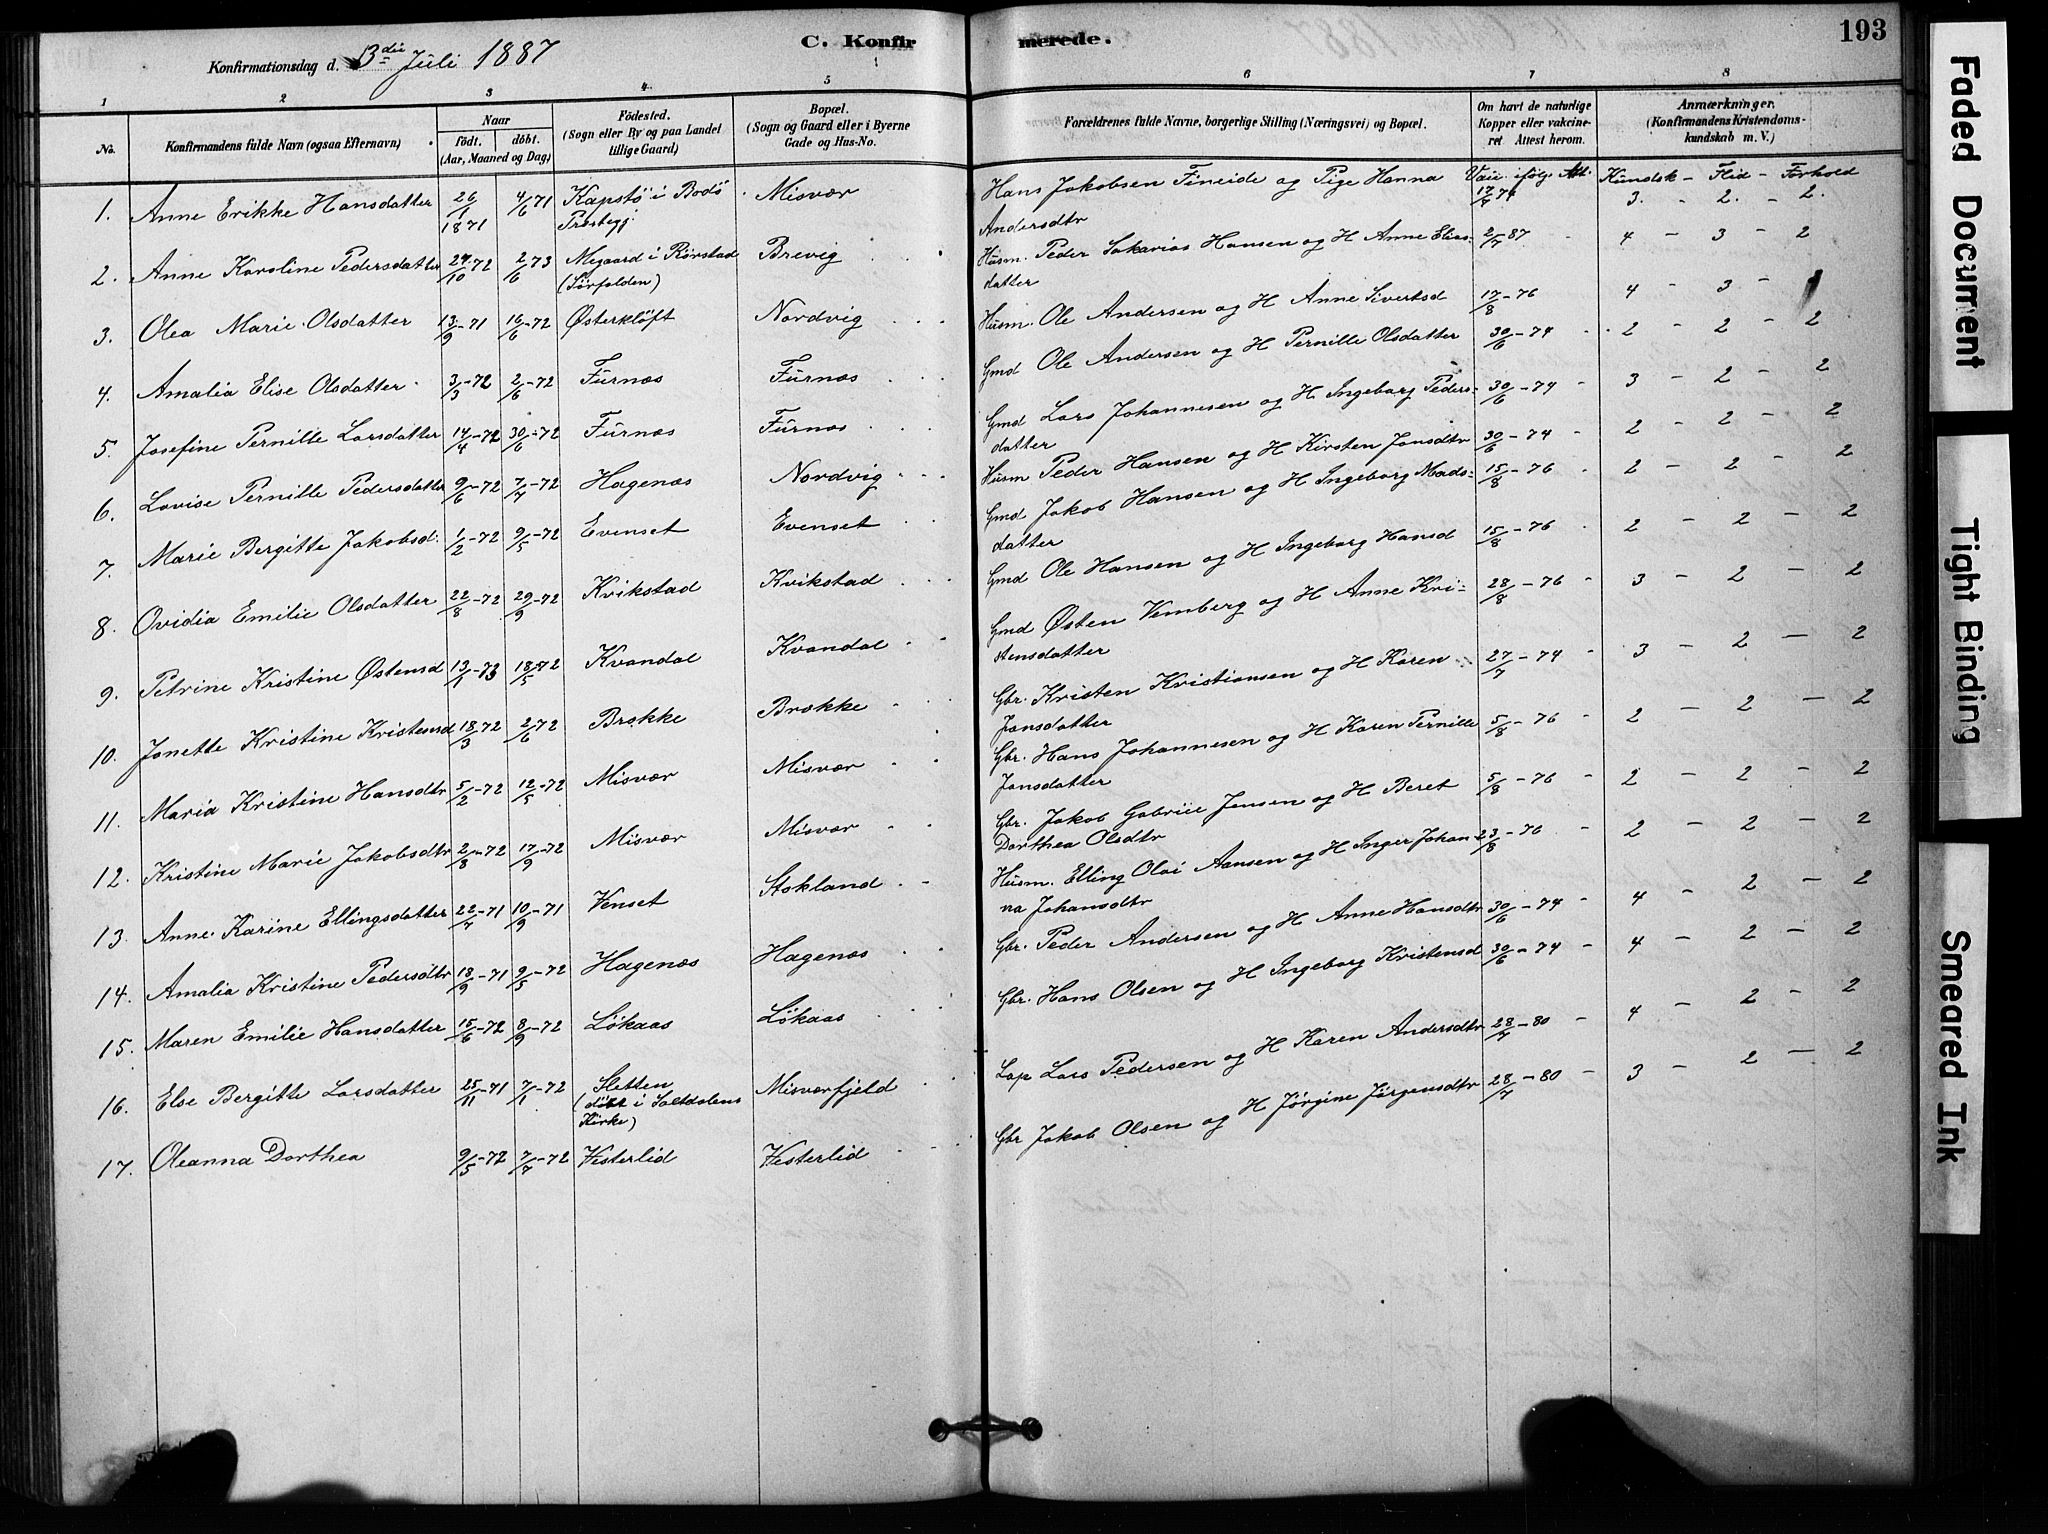 193
C. Konfirmerede.
Konfirmationsdag d. 3die Juli 1887
1 2 3 4 5 6 7 8
No. Konfirmandens fulde Navn (ogsaa Efternavn) Naar födt. döbt. (Aar, Maaned og Dag) Födested. (Sogn eller By og paa Landet tillige Gaard) Bopæl. (Sogn og Gaard eller i Byerne Gade og Hus-No. Forældrenes fulde Navne, borgerlige Stilling (Næringsvei) og Bopæl. Om havt de naturlige Kopper eller vakcineret Attest herom. Anmærkninger. (Konfirmandens Kristendomskundskab m. V.)
Kundsk - Flid - Forhold
1. Anne Erikke Hansdatter 26/1 1871 4/6 71 Kapstø i Bodø Præstegj. Misvær Hans Jakobsen Fineide og Pige Hanna Andersdtr Vac. ifølg. Att. 3. - 2. - 2.
2. Anne Karoline Pedersdatter 24/10 72 2/6 73 Megaard i Rørstad (Sørfolden) Brevig Husm. Peder Sakarias Hansen og H Anne Eliasdatter 2/7 87 4 - 3 - 2
3. Olea Marie Olsdatter 13/9 -71 16/6 -72 Østerkløft Nordvig Husm. Ole Andersen og H Anne Sivertsd 17/8 -76 4 - 3 -
4. Amalia Elise Olsdatter 3/3 -72 2/6 -72 Furnæs Furnæs Gmd Ole Andersen og H Pernille Olsdatter 30/6 -74 2 - 2 - 2
5. Josefine Pernille Larsdatter 14/4 -72 30/6 -72 Furnæs Furnæs Gmd Lars Johannesen og H Ingeborg Pedersdatter 30/6 -74 3 - 2 - 2
6. Lovise Pernille Pedersdatter 9/6 -72 7/7 -72 Hagenæs Nordvig Husm Peder Hansen og H Kirsten Jonsdtr 30/6 -74 2 - 2 - 2
7. Marie Bergitte Jakobsd. 1/2 -72 9/5 -72 Evenset Evenset Gmd Jakob Hansen og H Ingeborg Madsdatter 15/8 -76 2 - 2 - 2
8. Ovidia Emilie Olsdatter 22/8 -72 29/9 -72 Kvikstad Kvikstad Gmd Ole Hansen og H Ingeborg Hansd 15/8 -76 2 - 2 - 2
9. Petrine Kristine Østensd 13/1 -73 18/5 72 Kvandal Kvandal Gmd Østen Vemberg og H Anne Kristensdatter 28/8 -76 3 - 2 - 2
10. Jonette Kristine Kristensd 18/3 -72 2/6 72 Brække Brække Gbr. Kristen Kristiansen og H Karen Jonsdatter 27/7 -74 3 - 2 - 2
11. Maria Kristine Hansdtr 5/2 -72 12/5 -72 Misvær Misvær Gbr. Hans Johannesen og H Karen Pernille Jonsdatter 5/8 -76 2 - 2 - 2
12. Kristine Marie Jakobsdtr 2/8 -72 17/9 -72 Misvær Misvær Gbr. Jakob Gabriel Jensen og H Beret Dorthea Olsdtr 5/8 -76 2 - 2 - 2
13. Anne Karine Ellingsdatter 22/7 -71 10/9 -71 Venset Stokland Husm. Elling Olai Aansen og H Inger Johanna Johansdtr 23/8 -76 2 - 2 - 2
14. Amalia Kristine Pedersdtr 18/9 -71 9/5 -72 Hagenæs Hagenæs Gbr. Peder Andersen og H Anne Hansdtr 30/6 -74 4 - 2 - 2
15. Maren Emilie Hansdatter 15/6 -72 8/9 -72 Løkaas Løkaas Gbr. Hans Olsen og H Ingeborg Kristensd 30/6 -74 4 - 2 - 2
16. Else Bergitte Larsdatter 25/11 -71 7/1 -72 Sletten (døbt i Saltdalens Kirke) Misværfjeld Lap Lars Pedersen og H Karen Andersdtr 28/7 -80 4 - 2 - 2
17. Oleanna Dorthea 9/5 -72 7/7 -72 Vesterlid Vesterlid Gbr Jakob Olsen og H Jørgine Jørgensdtr 28/7 -80 3 - 2 - 2
Faded Document
Tight Binding
Smeared Ink